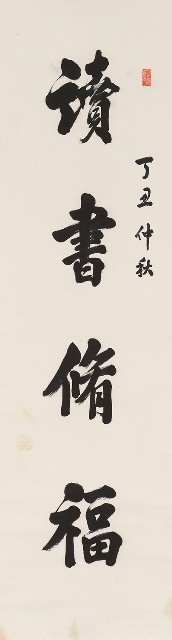 丁丑仲秋
讀書脩福